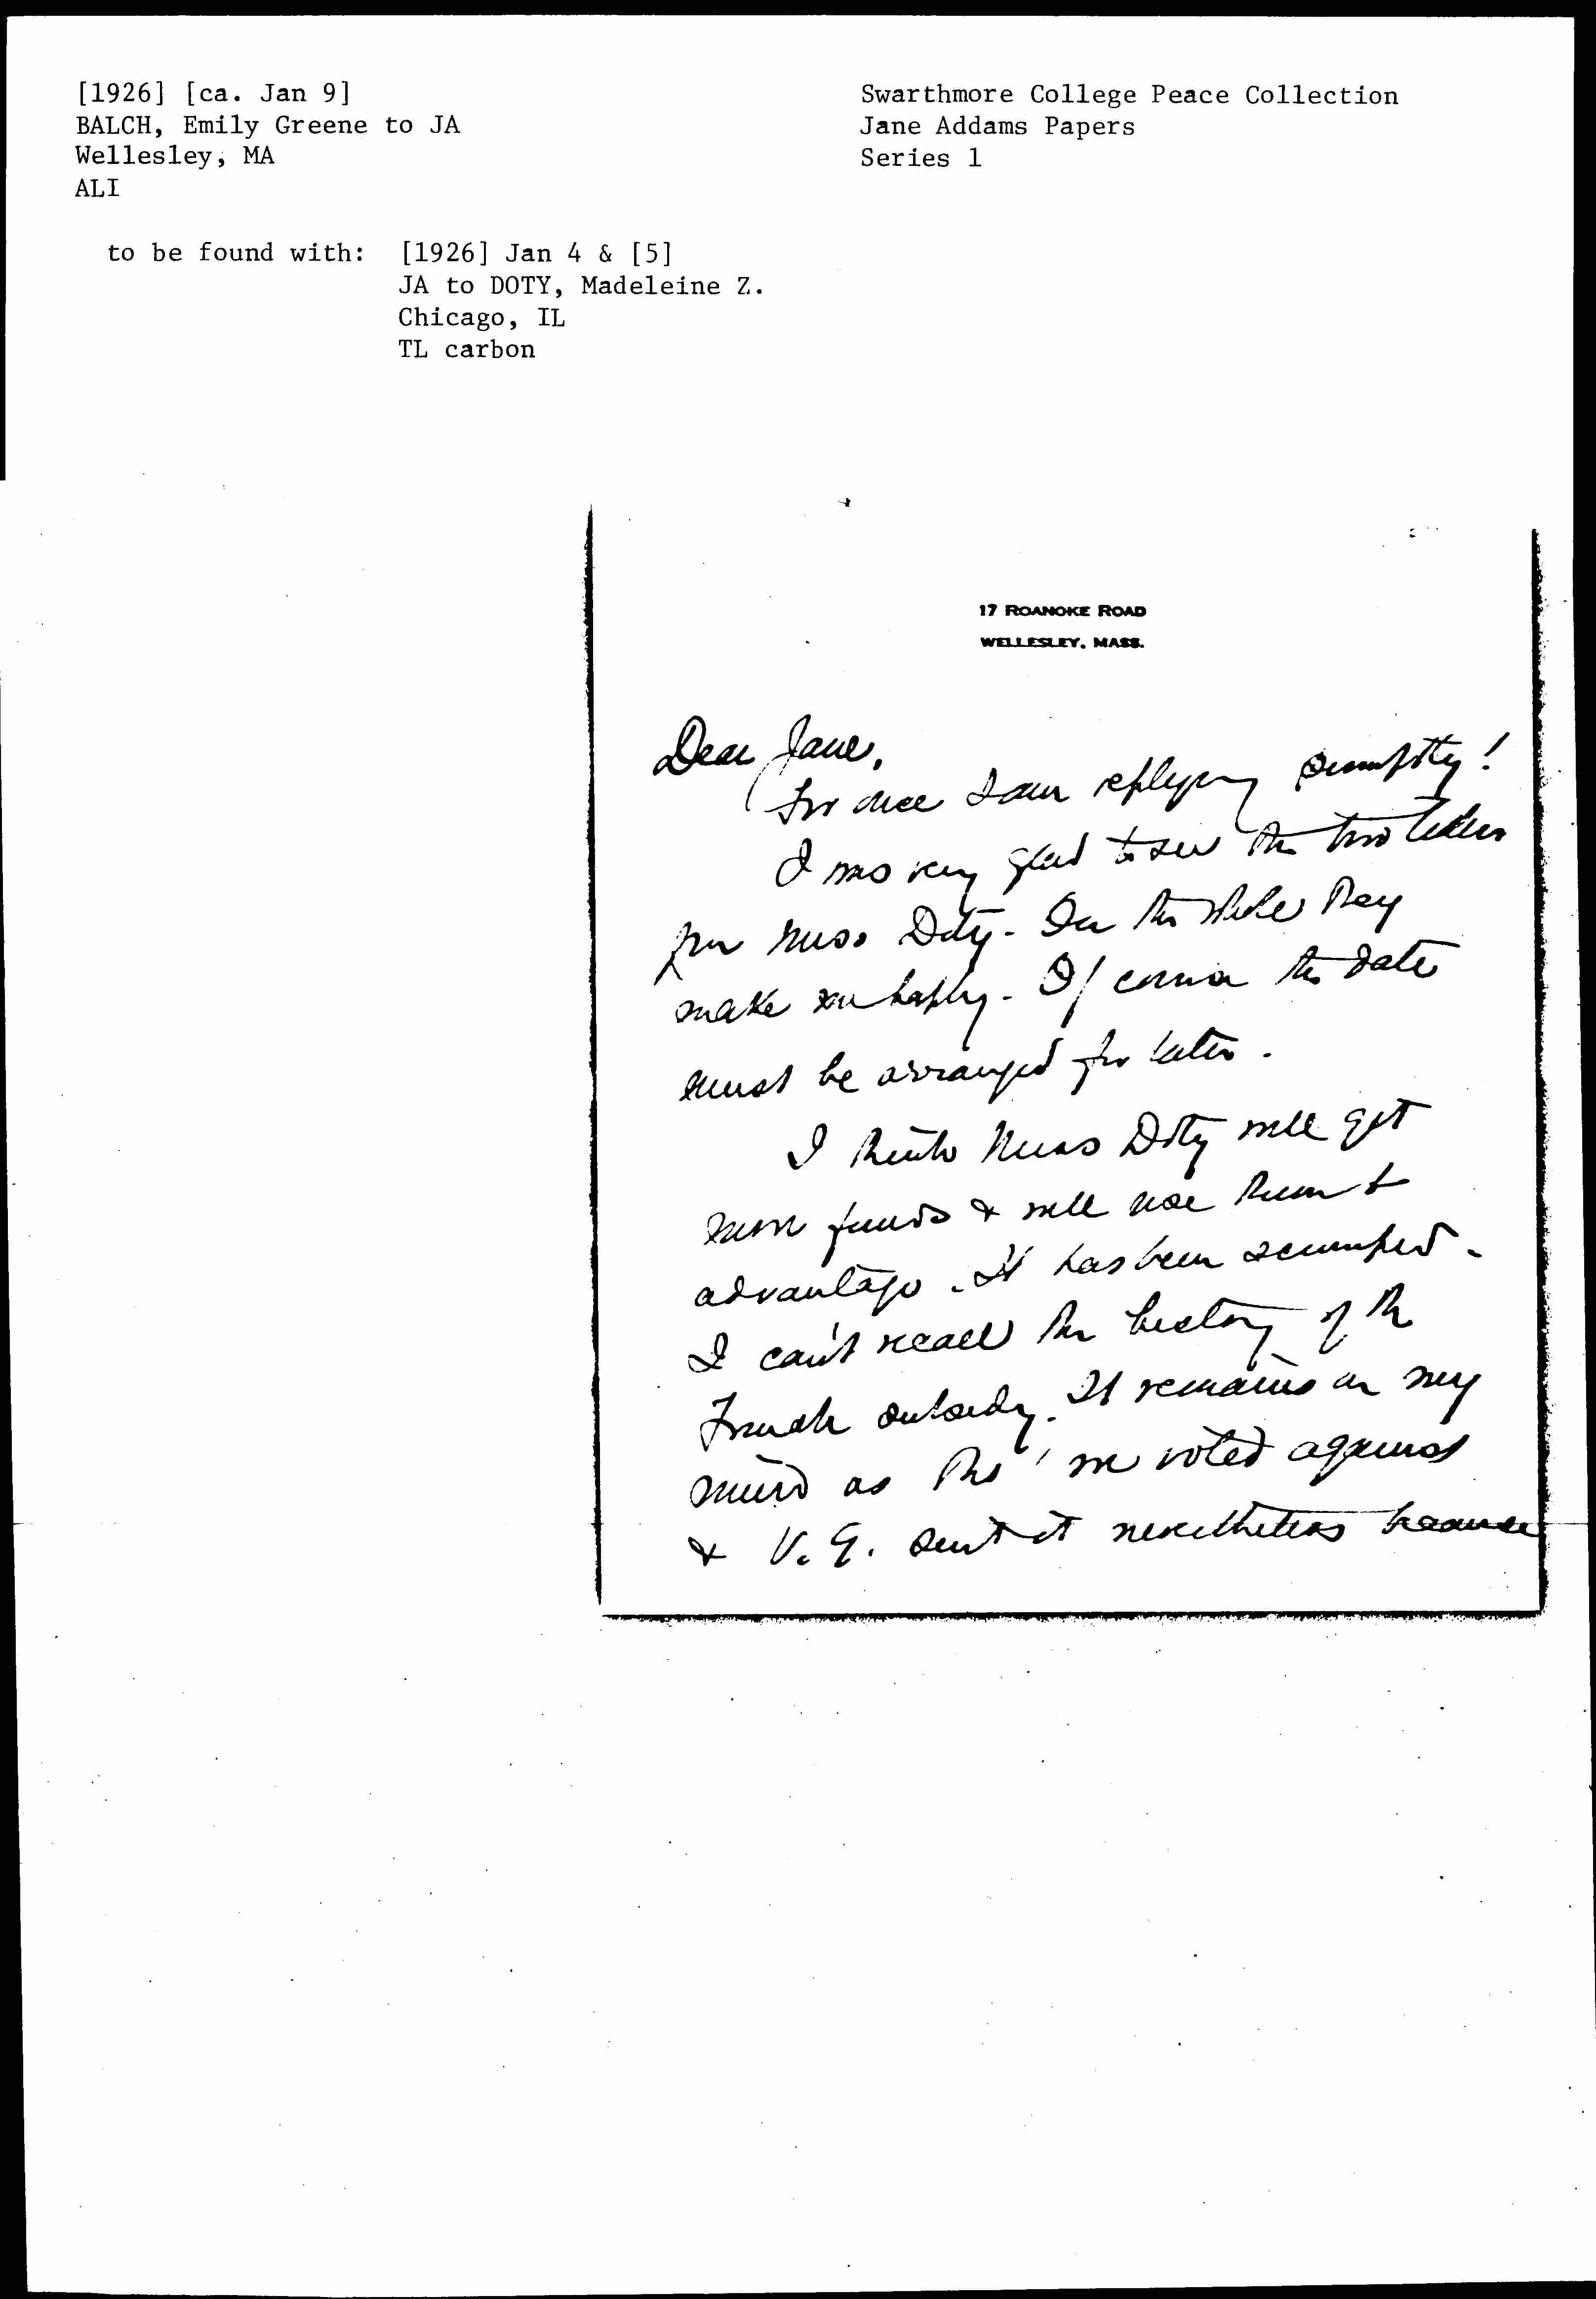 [1926] [ca. Jan 9]
BALCH, Emily Greene to JA
Wellesley, MA
ALI
Swarthmore College Peace Collection
Jane Addams Papers
Series 1
to be found with: [1926] Jan 4 & [5]
JA to DOTY, Madeleine Z.
Chicago, IL
TL carbon
17 ROANOKE ROAD
WELLESLEY, MASS.
Dear Jane,
For once I am replying promptly!
I was very glad to see the two letters
from Miss Doty. On the whole they
make me happy. If the date
must be arranged for later.
I think Miss Doty will get
more funds & will use them to
advantage. It has been scrimped.
I can't recall the history of the
French subsidy. It remains in my
mind as tho' we voted against
& V. G. sent it nevertheless because